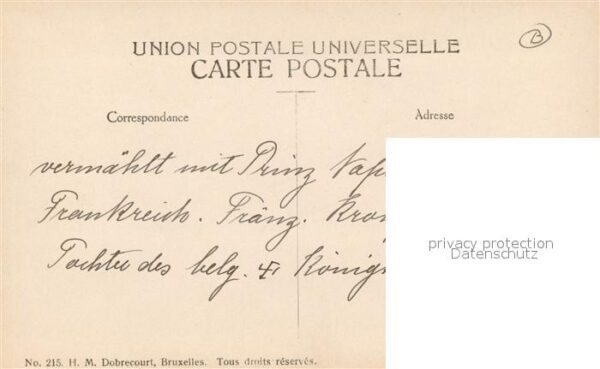 B
UNION POSTALE UNIVERSELLE
CARTE POSTALE
Correspondance
Adresse
vermählt mit Prinz Nap
Frankreich. Fränz. Kro
Tochter des belg. König
privacy protection
Datenschutz
No. 215. H. M. Dobrecourt, Bruxelles. Tous droits réservés.